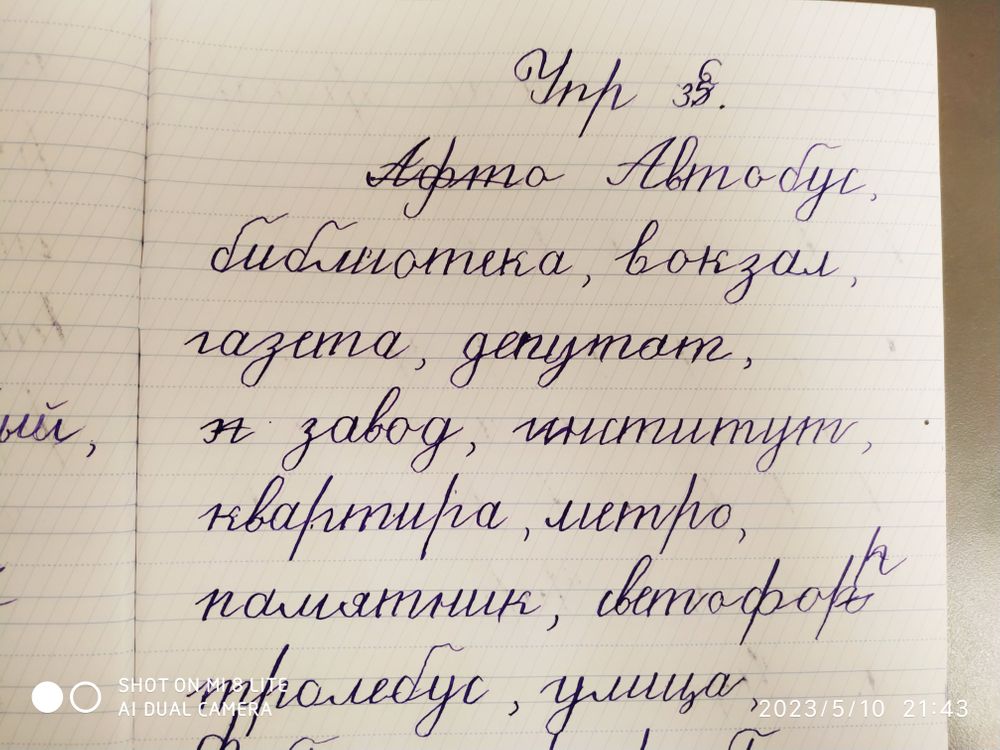 Упр 36.
Афто Автобус,
библиотека, вокзал,
газета, депутат,
ый, н завод, институт,
квартира, метро,
памятник, светофор
тролебус, улица,
SHOT ON MI 8 LITE
AI DUAL CAMERA
2023/5/10 21:43